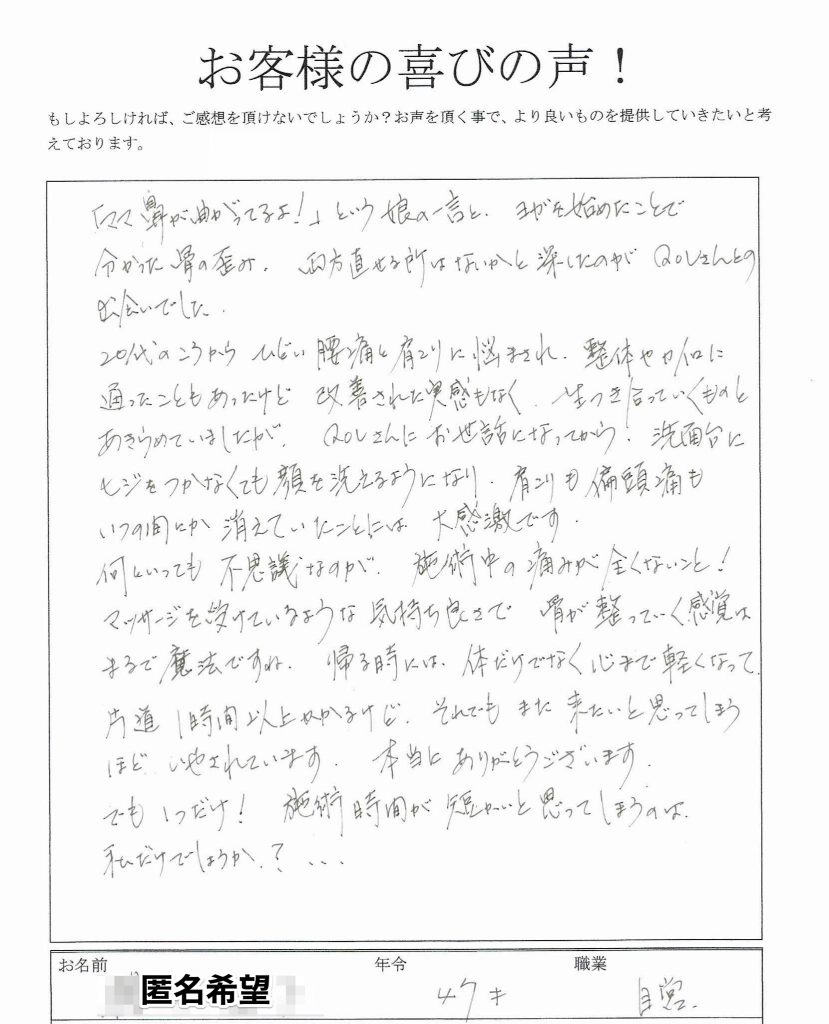 お客様の喜びの声！
もしよろしければ、ご感想を頂けないでしょうか？お声を頂く事で、より良いものを提供していきたいと考
えております。
「ママ鼻が曲がってるよ！」という娘の一言と、ヨガを始めたことで
分かった骨の歪み。両方直せる所はないかと探したのがQOLさんとの
出会いでした。
20代のころからひどい腰痛と肩こりに悩まされ、整体やカイロに
通ったこともあったけど改善された実感もなく、一生つき合っていくものと
あきらめていましたが、QOLさんにお世話になってから！洗面台に
ヒジをつかなくても顔を洗えるようになり、肩こりも偏頭痛も
いつの間にか消えていたことには大感激です。
何といっても不思議なのが、施術中の痛みが全くないこと！
マッサージを受けているような気持ち良さで骨が整っていく感覚は
まるで魔法ですね。帰る時には、体だけでなく心まで軽くなって、
片道1時間以上かかるけど、それでもまた来たいと思ってしまう
ほどいやされています。本当にありがとうございます。
でも1つだけ！施術時間が短かいと思ってしまうのは、
私だけでしょうか？...
お名前 年令 職業
匿名希望 47才 自営